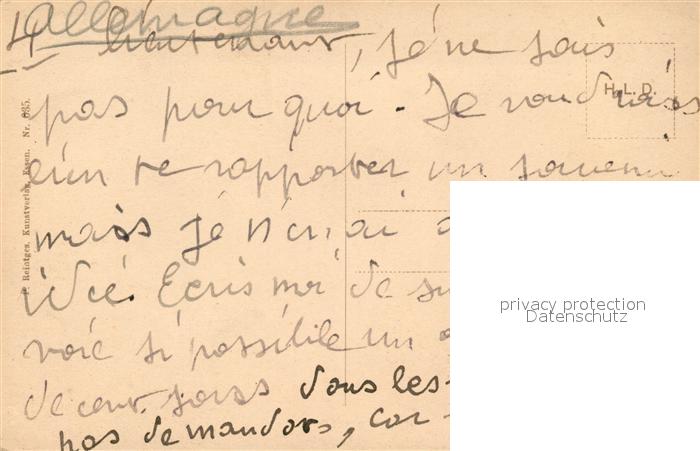 Allemagne
lieutenant, je ne sais
pas pour quoi. Je voudrais
H. L. D.
bien te rapporter un souvenir
mais je n'en ai
idée. Ecris moi de su
voie si possible un
de ces jours tous les
pas demandors, car
P. Reintges, Kunstverlag, Essen. Nr. 685.
privacy protection
Datenschutz